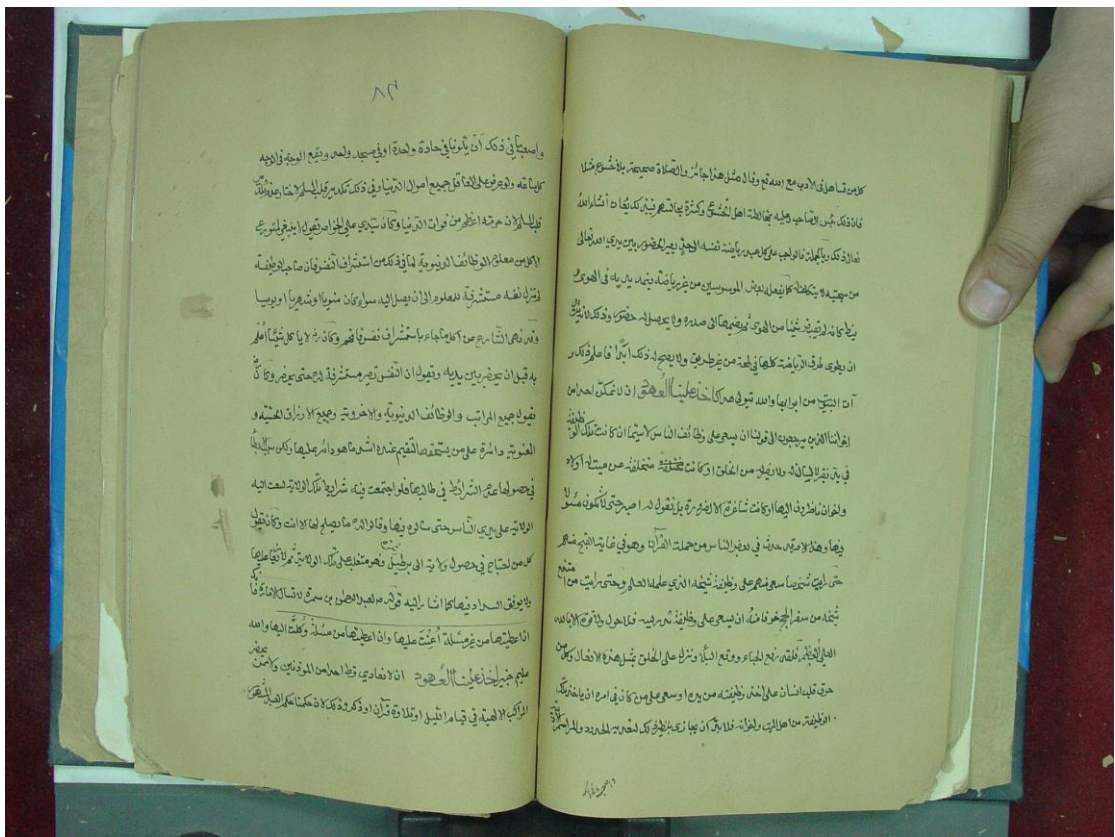 كل من تساهل في الأدب مع الله تع وقال مثل هذا جائز والصلاة صحيحة بلا خشوع مثلا
فان ذلك يبس الصاحب وعليه بمخالطة اهل الخشوع وكثرة مجالستهم
تعالى ذلك وبالجملة فالواجب على كل عبد رياضة نفسه الى يصير الحضور بين يدي الله تعالى
من سجيته لا يتكلفه كما يفعله بعض الموسوسين من غير رياضة يمد يديه في الهوى
شيئا من الهوى ثم يضمها الى صدره ولا يحصل له حضور وذلك لانه يريد
ان يطوي طرق الرياضة كلها في لحظة من غير طريق ولا يصح له ذلك ابدا فاعلم ذلك و
آت البيوت من ابوابها والله يتولى هداك اخذ علينا العهود ان لا نمكن احدا من
اخواننا الذين يرجعون الى قولنا ان يسعى على وظائف الناس لا سيما ان كانت تلك الوظيفة
في يد فقير لا يسأل له ولا من الخلق او كانت متخلفة عن ميت له اولاد
واخوان ناظروف اليها او كانت شاغرة الا لضرورة بل نقول له اصبر حتى تكون مسئولا
فيها وهذا الامر قد حدث في بعض الناس من حملة القرآن وهو في غاية القبح منهم
حتى رايت شخصا سعى منهم على وظيفة شيخه الذي علمه العلم وحتى رايت من
شيخه من سفر الحج خوفا منه ان يسعى على وظيفة تدريسه فلا حول ولا قوة الا بالله
العلي العظيم فلقد رفع الحياء ووقع البلاء ونزل على الخلق بمثل هذه الافعال وكل من
حرق قلب انسان على اخذ وظيفته من يده او سعى على من كان في امره ان ياخذ تلك
الوظيفة من اهل الميت واخوانه فلا بد ان يجازى بنظير ذلك
٨٣
واصعبها في ذلك ان يكونا في حارة واحدة او في مسجد واحد ويقع الوجه في الوجه
كل ساعة ولو عرض على العاقل جميع اموال الدنيا وفي ذلك تكدير قلب المسلم لاختار عدم تكدير
قلب المسلم لان حرمته اعظم من فوات الدنيا وكان سيدي علي الخواص يقول لا ينبغي لمتورع
الاكل من معلوم الوظائف الدنيوية لما في ذلك من استشراف النفس فان صاحب الوظيفة
لم تزل نفسه مستشرفة للمعلوم الى ان يصل اليه سواء كان سنويا او شهريا او يوميا
وقد نهى الشارع عن اكل ما جاء باستشراف نفس فافهم وكان لا ياكل شيئا اعلم
به قبل ان يحضر بين يديه ويقول ان النفس تصير مستشرفة له حتى يحضر وكان
يقول جميع المراتب والوظائف الدنيوية والاخروية وجميع الارزاق الحسية و
المعنوية دائرة على من يستحقها لتقيم عنده اشد ما هو دائر عليها ولكن
في حصولها عدم الشرائط في طالبها فلو اجتمعت فيه شرائط تلك الولاية لسعت اليه
الولاية على يدي الناس حتى سالوه فيها وقالوا له ما يصلح لها الا انت وكان يقول
كل من احتاج في حصول ولاية الى برطيل فهو متغلب على تلك الولاية ثم لا
ولا يوفق السداد فيها كما اشار اليه قوله لعبد الرحمن بن سمرة لا تسال الامارة فانك
ان اعطيتها من غير مسئلة اعنت عليها وان اعطيتها من مسئلة وكلت اليها والله
عليم خبير اخذ علينا العهود ان لا نعادي قط احدا من المؤذنين ولا ممن يحضر
المواكب الالهية في قيام الليل او تلاوة قرآن او ذكر وذلك لان حكمنا على العبد